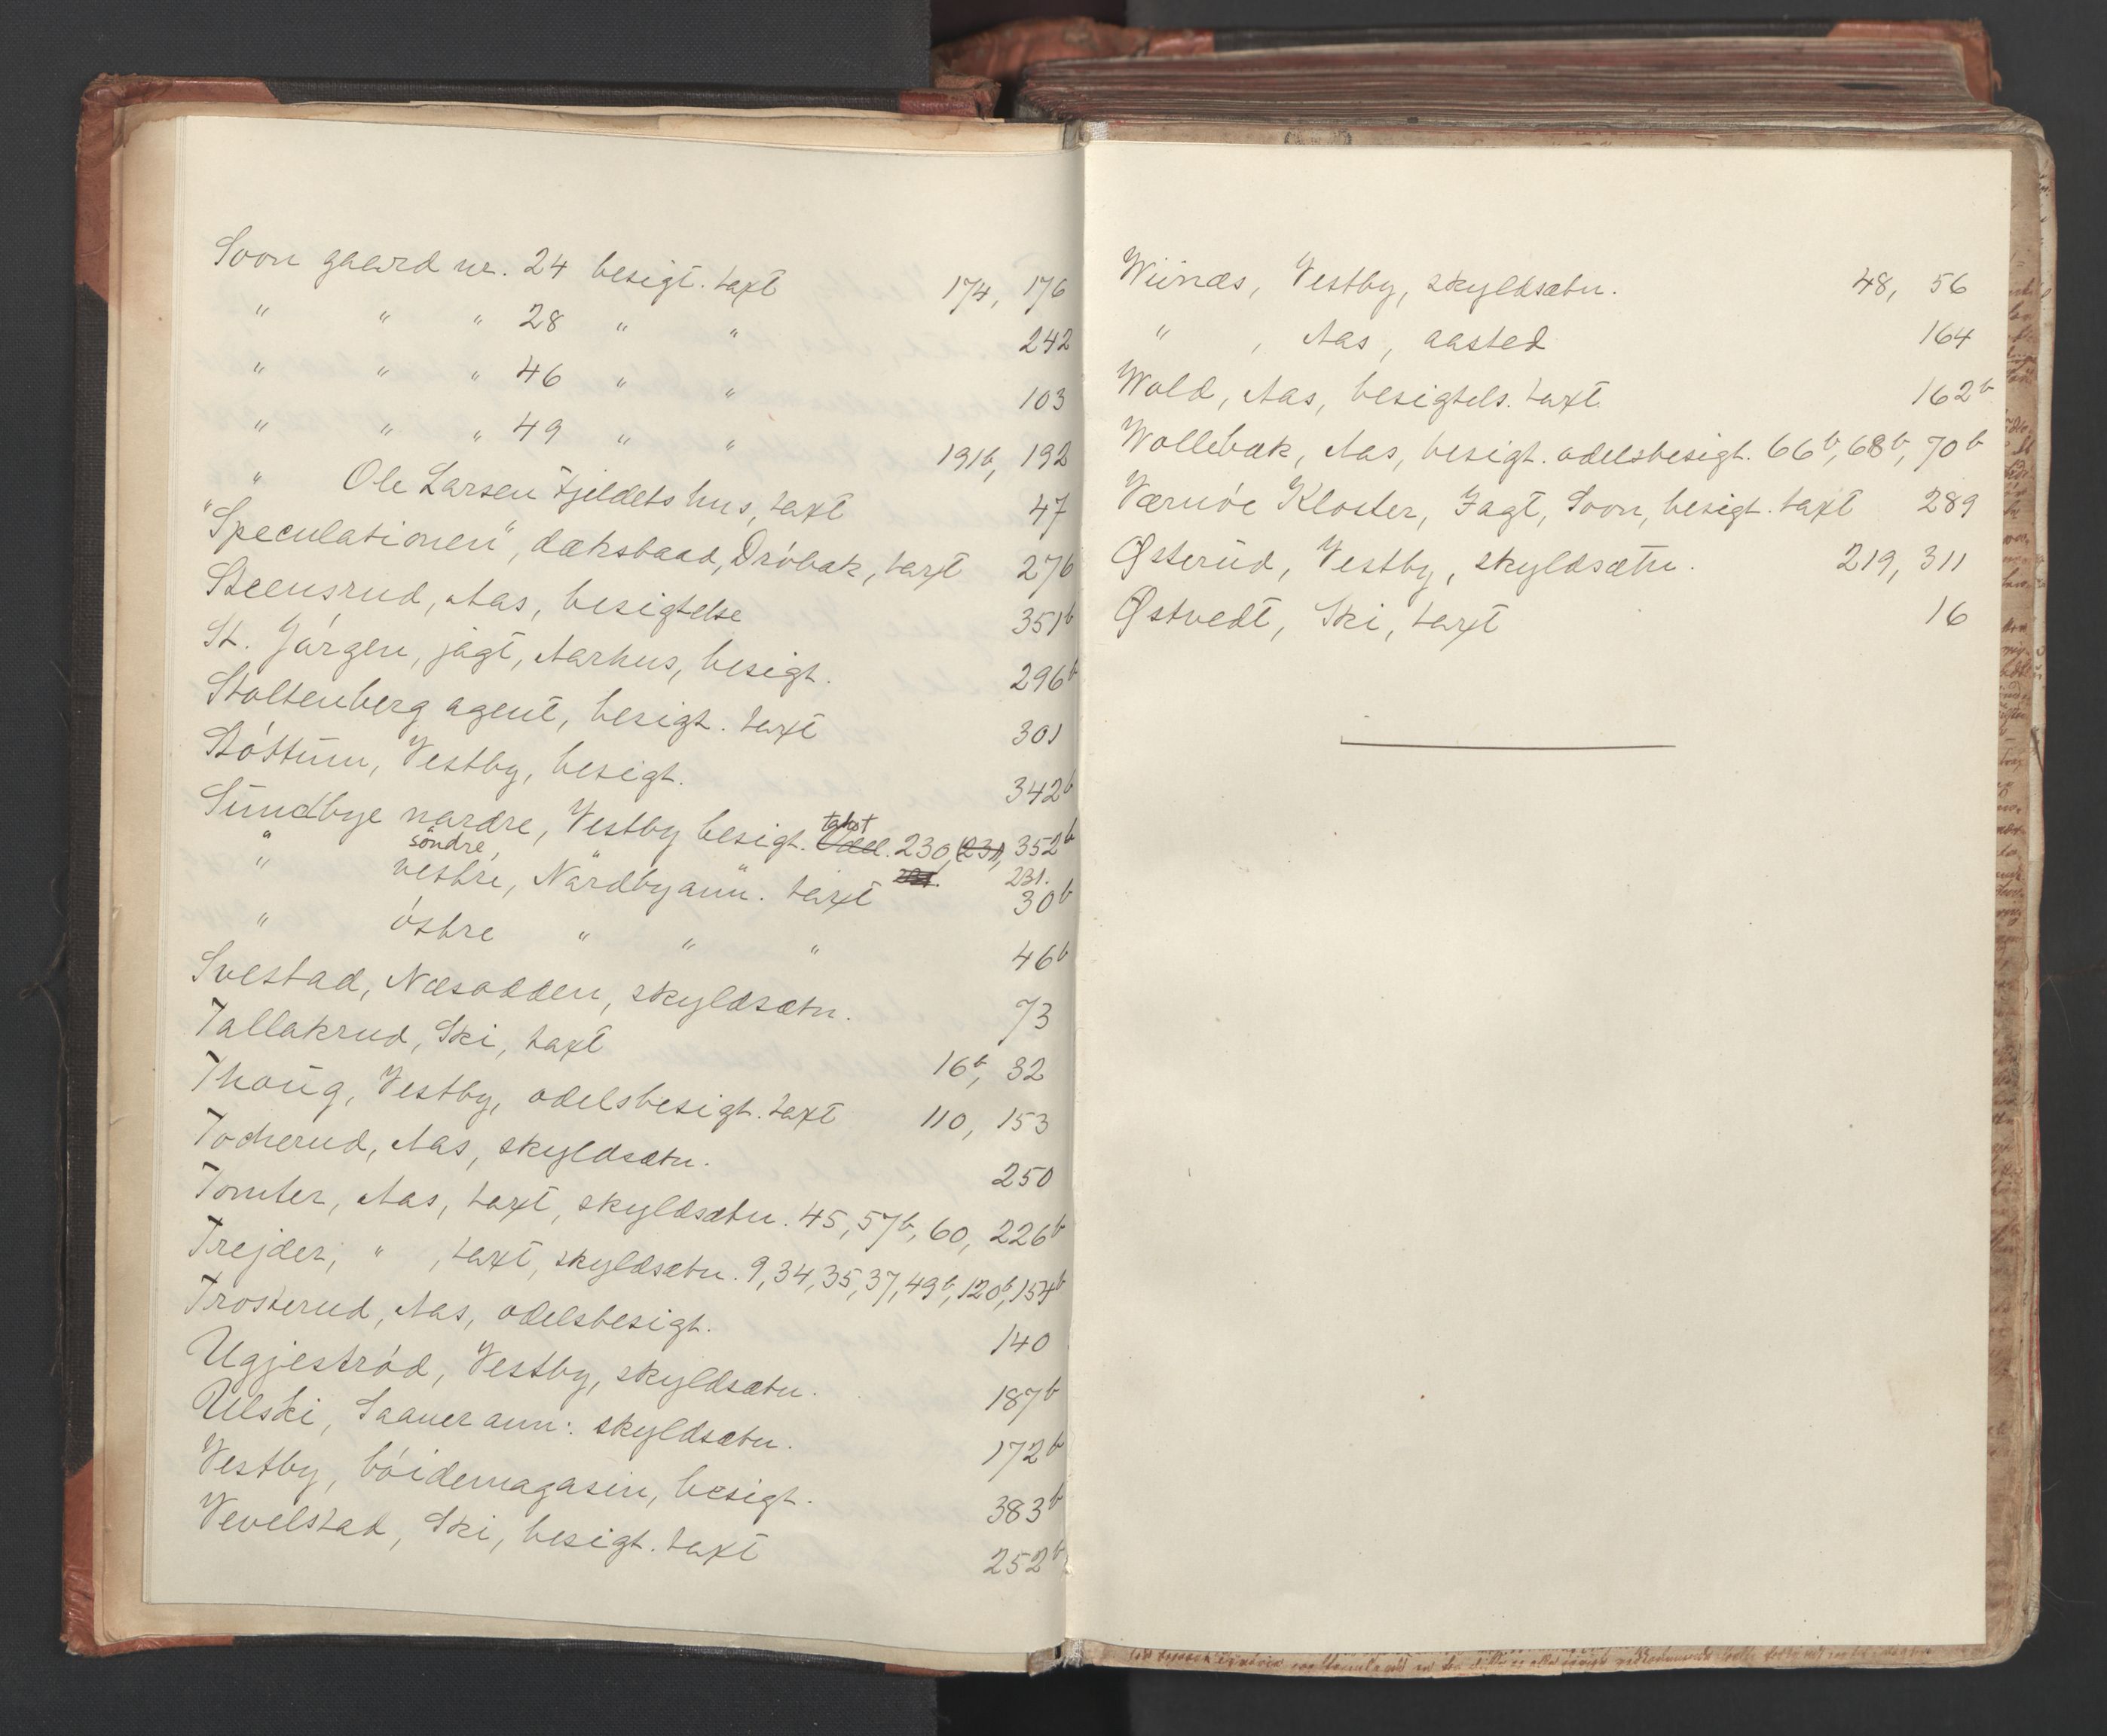 Soon gaard nr. 24 besigt. taxt 174, 176
" " " 28 " " 242
" " " 46 " " 103
" " " 49 " " 191b, 192
" Ole Larsen Fjeldets hus, taxt 47
"Speculationen", dæksbaad, Dróbak, taxt 276
Steensrud, Aas, besigtelse 351b
St. Jórgen, jagt, Aarhus, besigt. 296b
Stoltenberg agent, besigt. taxt 301
Stóttum, Vestby, besigt. 342b
Sundbye nordre, Vestby besigt. takst 230, 231, 352b
" söndre, " " 231.
" vestre, Nordbyann. taxt 30b
" óstre " " " 46b
Svestad, Næsodden, skyldsætn. 73
Tallakrud, Ski, taxt 16b, 32
Thoug, Vestby, odelsbesigt. taxt 110, 153
Tocherud, Aas, skyldsætn. 250
Tomter, Aas, taxt, skyldsætn. 45, 57b, 60, 226b
Trejder, " , taxt, skyldsætn. 9, 34, 35, 37, 49b, 120b, 154b
Trosterud, Aas, odelsbesigt. 140
Ugjestród, Vestby, skyldsætn. 187b
Ulski, Saaner ann: skyldsætn. 172b
Vestby, bóidemagasin, besigt. 383b
Vevelstad, Ski, besigt. taxt 252b
Wiinæs, Vestby, skyldsætn. 48, 56
" , Aas, aasted 164
Wold, Aas, besigtels. taxt 162b
Wollebæk, Aas, besigt. odelsbesigt. 66b, 68b, 70b
Værnóe Kloster, Jagt, Soon, besigt. taxt 289
Østerud, Vestby, skyldsætn. 219, 311
Østvedt, Ski, taxt 16